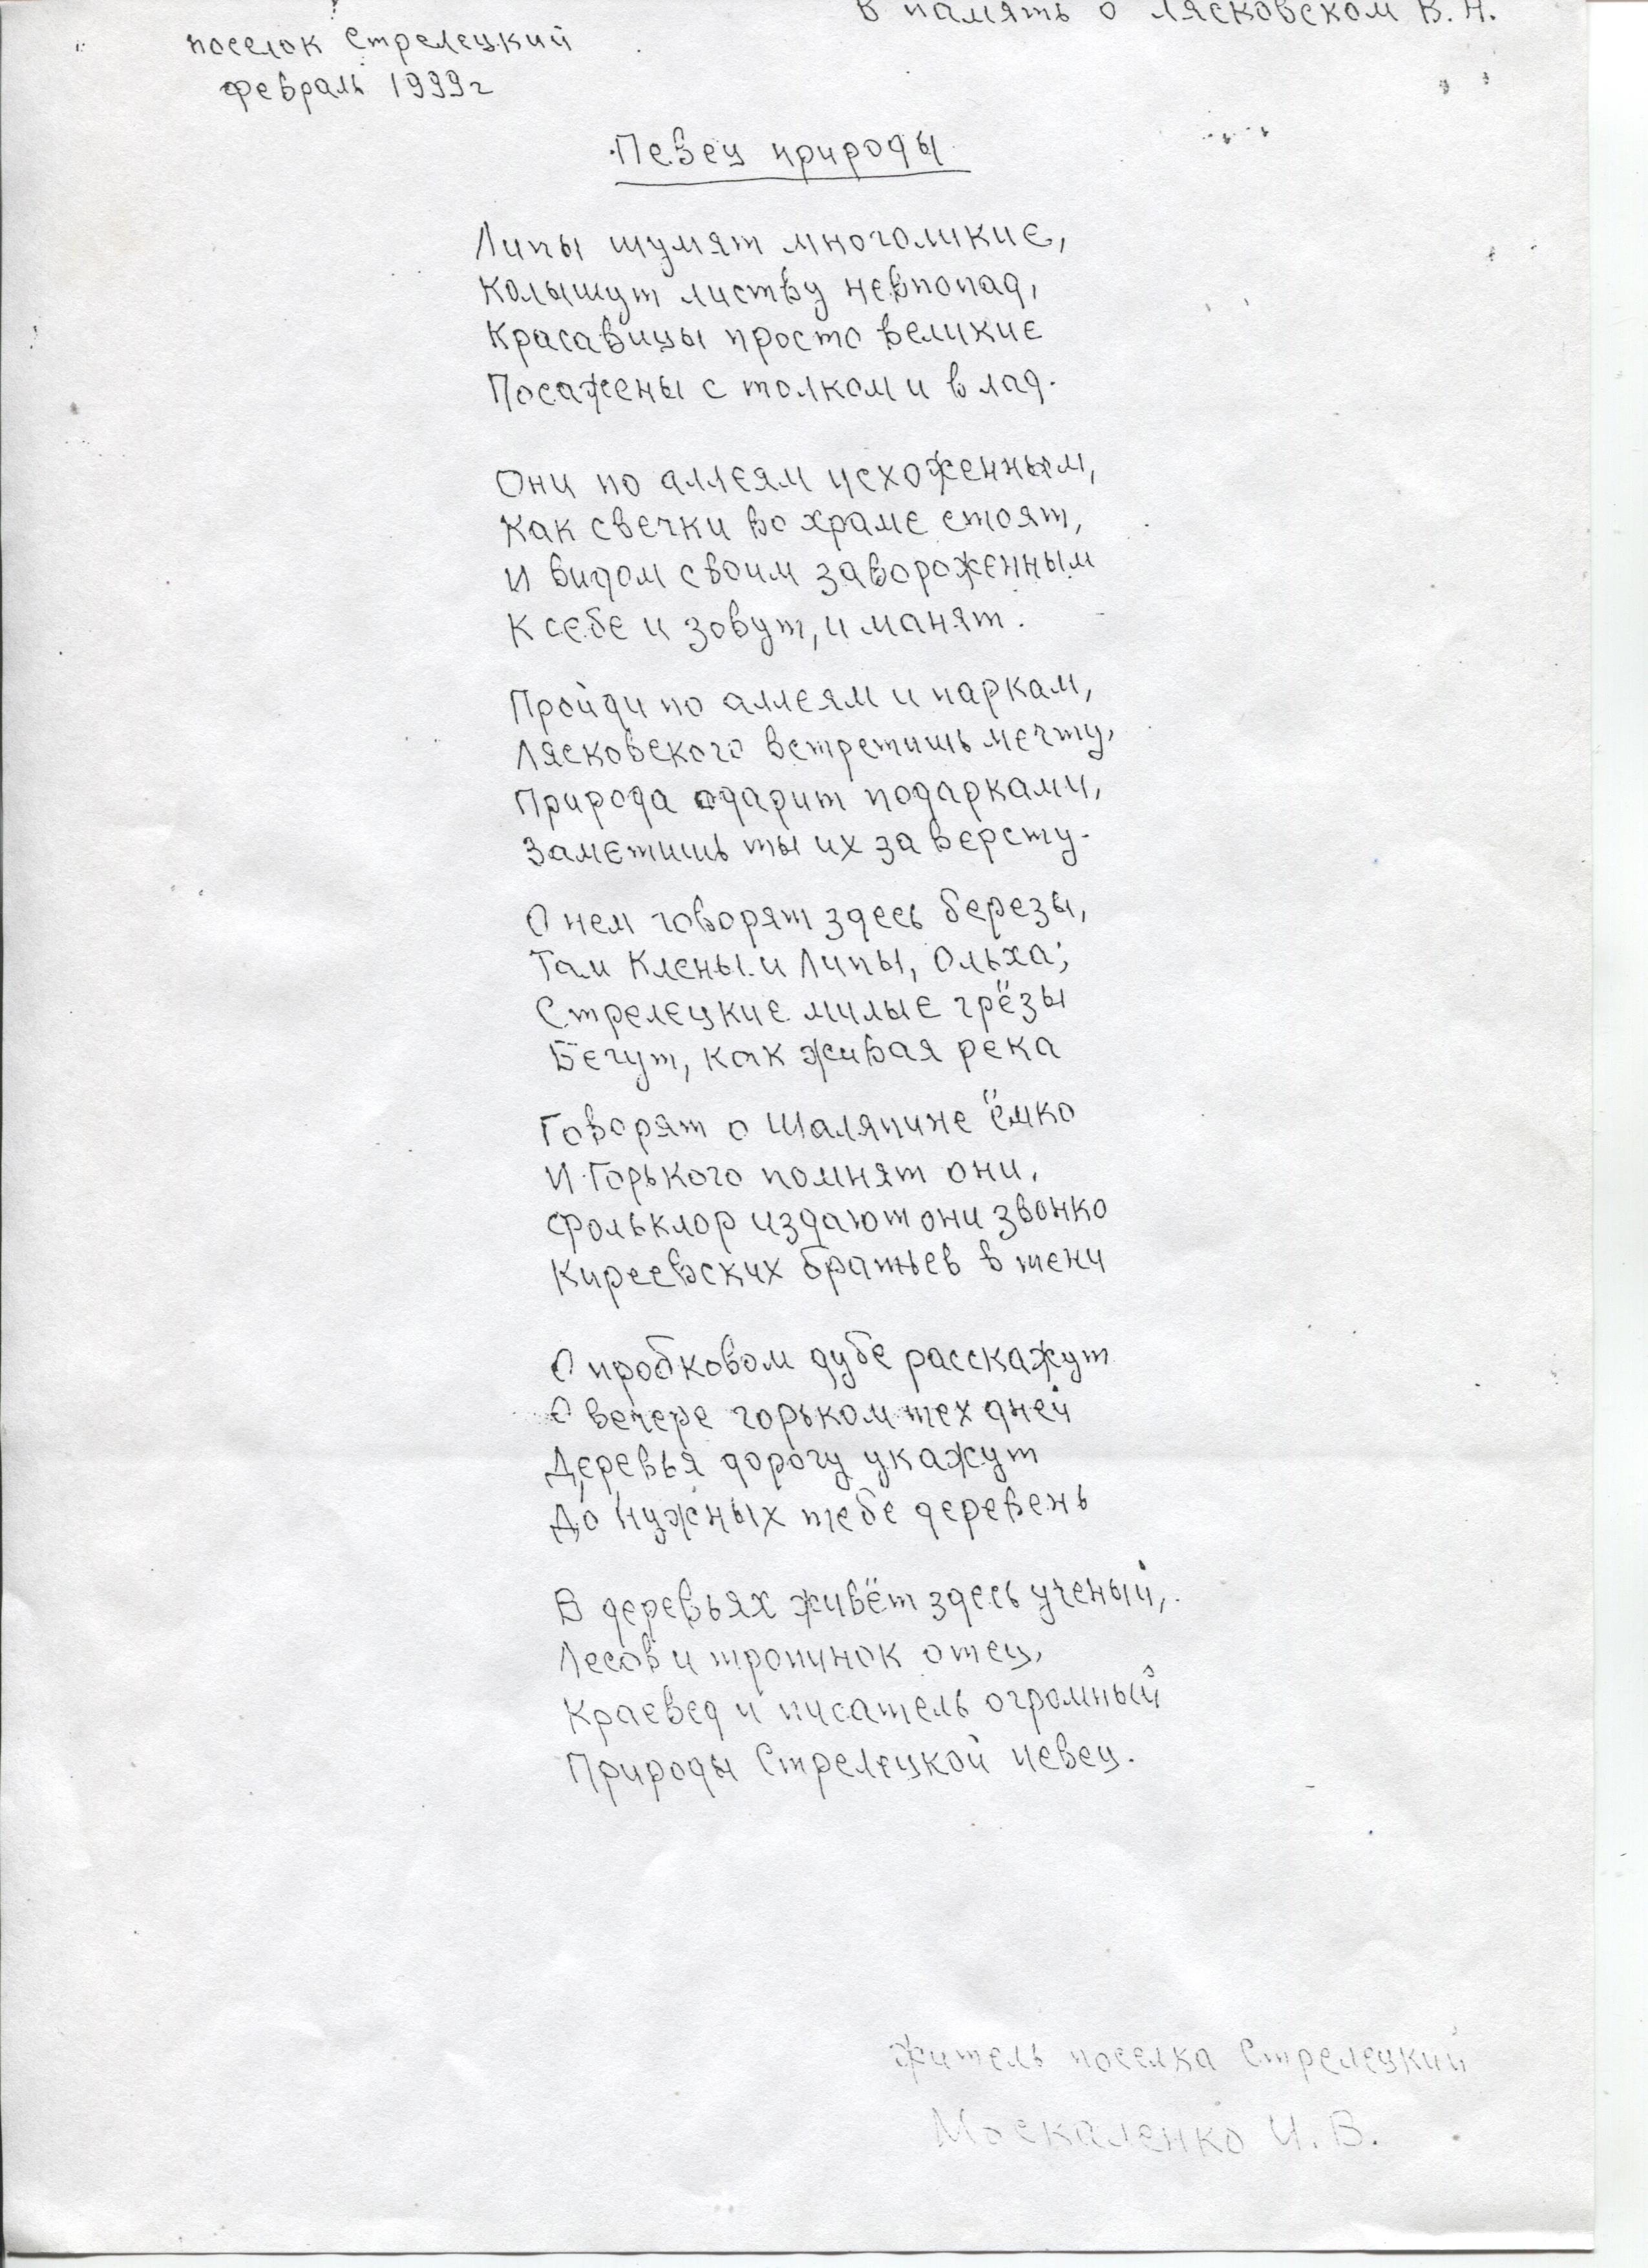 В память о Лясковском В. Н.
поселок Стрелецкий
февраль 1999г
Певец природы
Липы шумят многоликие,
Колышут листву невпопад,
Красавицы просто великие
Посажены с толком и в лад.
Они по аллеям исхоженным,
Как свечки во храме стоят,
И видом своим завороженным
К себе и зовут, и манят.
Пройди по аллеям и паркам,
Лясковского встретишь мечту,
Природа одарит подарками,
Заметишь ты их за версту.
О нем говорят здесь березы,
Там Клены и Липы, Ольха;
Стрелецкие милые грёзы
Бегут, как живая река
Говорят о Шаляпине ёмко
И Горького помнят они,
Фольклор издают они звонко
Киреевских братьев в тени
О пробковом дубе расскажут
О вечере горьком тех дней
Деревья дорогу укажут
До нужных тебе деревень
В деревьях живёт здесь ученый,
Лесов и тропинок отец,
Краевед и писатель огромный
Природы Стрелецкой певец.
житель поселка Стрелецкий
Москаленко И. В.